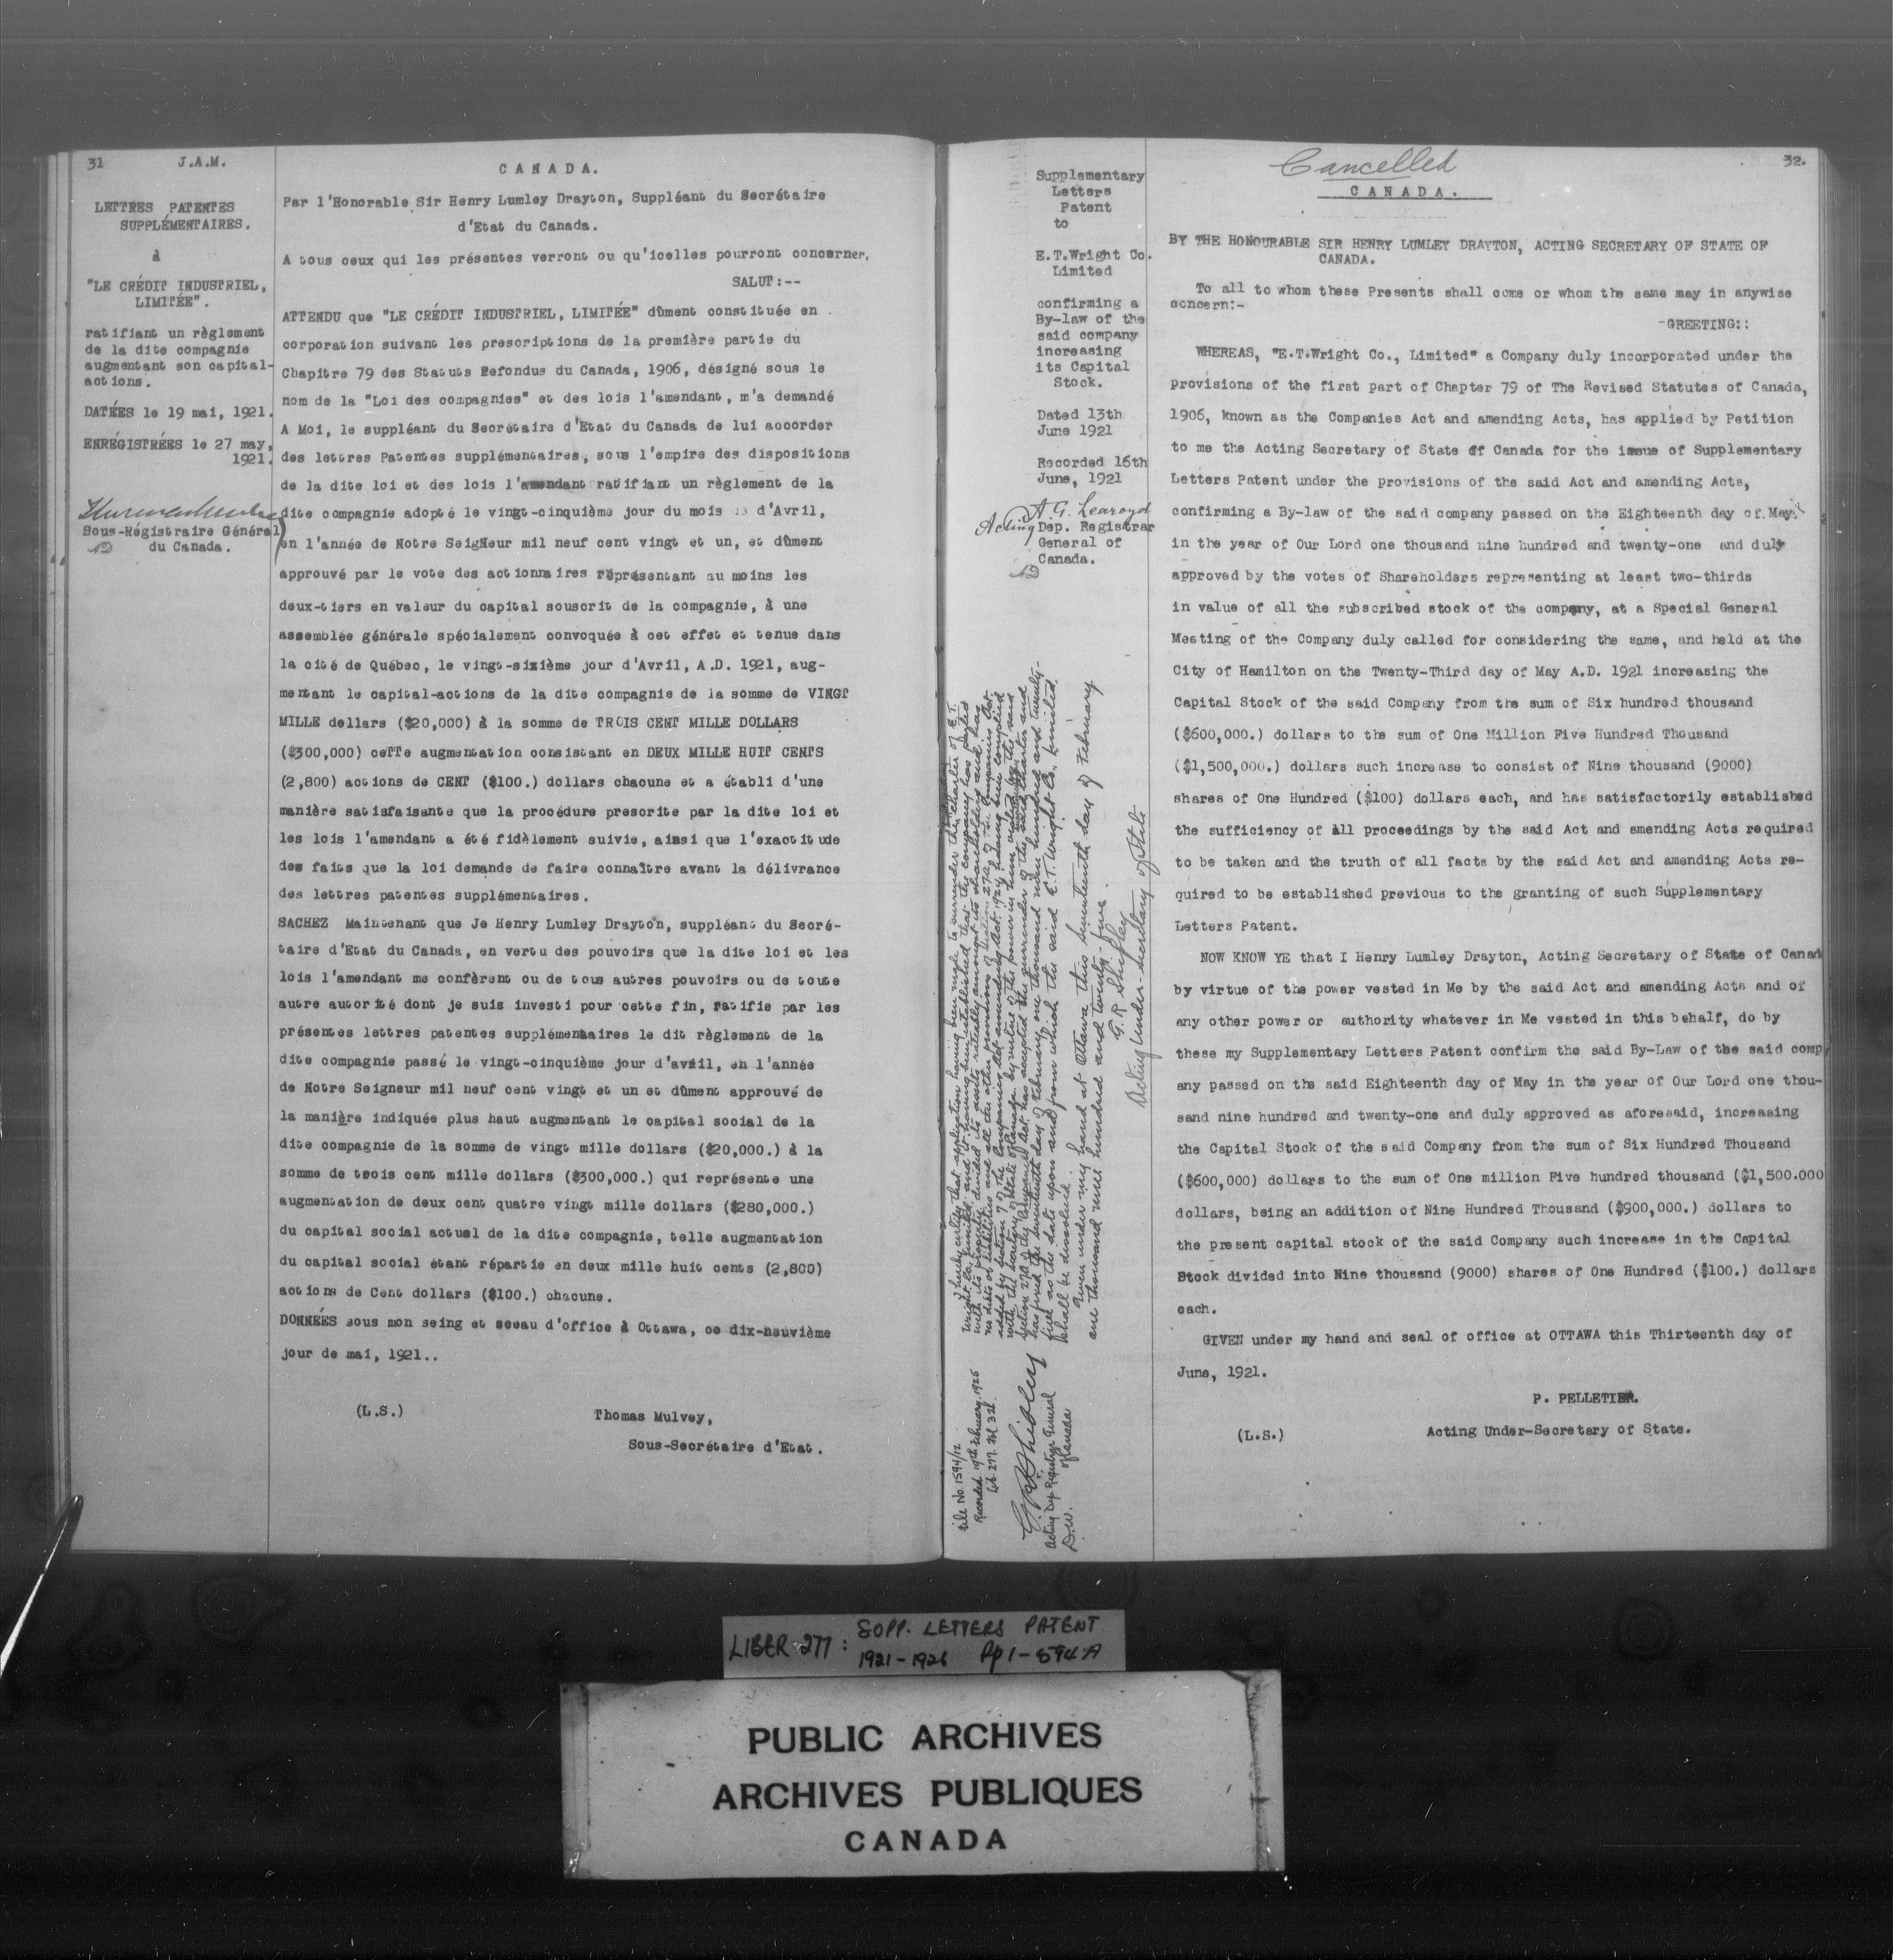 31 J.A.M.
LETTRES PATENTES
SUPPLÉMENTAIRES.
à
"LE CRÉDIT INDUSTRIEL,
LIMITÉE".
ratifiant un règlement
de la dite compagnie
augmentant son capital-
actions.
DATÉES le 19 mai, 1921.
ENRÉGISTRÉES le 27 may,
1921.
Sous-Régistraire Général
du Canada.
CANADA.
Par l'Honorable Sir Henry Lumley Drayton, Suppléant du Secrétaire
d'Etat du Canada.
A tous ceux qui les présentes verront ou qu'icelles pourront concerner,
SALUT:--
ATTENDU que "LE CRÉDIT INDUSTRIEL, LIMITÉE" dûment constituée en
corporation suivant les prescriptions de la première partie du
Chapitre 79 des Statuts Refondus du Canada, 1906, désigné sous le
nom de la "Loi des compagnies" et des lois l'amendant, m'a demandé
A Moi, le suppléant du Secrétaire d'Etat du Canada de lui accorder
des lettres Patentes supplémentaires, sous l'empire des dispositions
de la dite loi et des lois l'amendant ratifiant un règlement de la
dite compagnie adopté le vingt-cinquième jour du mois de d'Avril,
en l'année de Notre SeigNeur mil neuf cent vingt et un, et dûment
approuvé par le vote des actionnaires réprésentant au moins les
deux-tiers en valeur du capital souscrit de la compagnie, à une
assemblée générale spécialement convoquée à cet effet et tenue dans
la cité de Québec, le vingt-sixième jour d'Avril, A.D. 1921, aug-
mentant le capital-actions de la dite compagnie de la somme de VINGT
MILLE dollars ($20,000) à la somme de TROIS CENT MILLE DOLLARS
($300,000) cette augmentation consistant en DEUX MILLE HUIT CENTS
(2,800) actions de CENT ($100.) dollars chacune et a établi d'une
manière satisfaisante que la procédure prescrite par la dite loi et
les lois l'amendant a été fidèlement suivie, ainsi que l'exactitude
des faits que la loi demande de faire connaître avant la délivrance
des lettres patentes supplémentaires.
SACHEZ Maintenant que Je Henry Lumley Drayton, suppléant du Secré-
taire d'Etat du Canada, en vertu des pouvoirs que la dite loi et les
lois l'amendant me confèrent ou de tous autres pouvoirs ou de toute
autre autorité dont je suis investi pour cette fin, ratifie par les
présentes lettres patentes supplémentaires le dit règlement de la
dite compagnie passé le vingt-cinquième jour d'avril, en l'année
de Notre Seigneur mil neuf cent vingt et un et dûment approuvé de
la manière indiquée plus haut augmentant le capital social de la
dite compagnie de la somme de vingt mille dollars ($20,000.) à la
somme de trois cent mille dollars ($300,000.) qui représente une
augmentation de deux cent quatre vingt mille dollars ($280,000.)
du capital social actuel de la dite compagnie, telle augmentation
du capital social étant répartie en deux mille huit cents (2,800)
actions de Cent dollars ($100.) chacune.
DONNÉES sous mon seing et sceau d'office à Ottawa, ce dix-neuvième
jour de mai, 1921..
(L.S.) Thomas Mulvey,
Sous-Secrétaire d'Etat.
Supplementary
Letters
Patent
to
E.T.Wright Co.
Limited
confirming a
By-law of the
said company
increasing
its Capital
Stock.
Dated 13th
June 1921
Recorded 16th
June, 1921
A. G. Learoyd
Acting Dep. Registrar
General of
Canada.
I hereby certify that application having been made to surrender the charter of E.T.
Wright Co. Limited and it having been established that the company has parted
with its property, divided its assets rateably amongst its shareholders and has
no debts or liabilities and all the other provisions of Section 27A of the Companies Act
added by Section 4 of the Companies Act amending Act, 1924, having been complied
with, the Secretary of State of Canada by virtue of the power in him vested by the said
Section 27A of the Companies Act has accepted the surrender of the said charter and
has fixed the seventeenth day of February, one thousand nine hundred and twenty-
five as the date upon and from which the said E.T. Wright Co., Limited,
shall be dissolved.
Given under my hand at Ottawa this seventeenth day of February
one thousand nine hundred and twenty-five.
G. R. Shibley
Acting Under-Secretary of State
File No. 1594/12
Recorded 19th February, 1925
Lib. 277. fol. 32.
G R Shibley
Acting Dep. Registrar General
of Canada
D.W.
Cancelled
32.
CANADA.
BY THE HONOURABLE SIR HENRY LUMLEY DRAYTON, ACTING SECRETARY OF STATE OF
CANADA.
To all to whom these Presents shall come or whom the same may in anywise
concern:-
-GREETING::
WHEREAS, "E.T.Wright Co., Limited" a Company duly incorporated under the
provisions of the first part of Chapter 79 of The Revised Statutes of Canada,
1906, known as the Companies Act and amending Acts, has applied by Petition
to me the Acting Secretary of State of Canada for the issue of Supplementary
Letters Patent under the provisions of the said Act and amending Acts,
confirming a By-law of the said company passed on the Eighteenth day of May
in the year of Our Lord one thousand nine hundred and twenty-one and duly
approved by the votes of Shareholders representing at least two-thirds
in value of all the subscribed stock of the company, at a Special General
Meeting of the Company duly called for considering the same, and held at the
City of Hamilton on the Twenty-Third day of May A.D. 1921 increasing the
Capital Stock of the said Company from the sum of Six hundred thousand
($600,000.) dollars to the sum of One Million Five Hundred Thousand
($1,500,000.) dollars such increase to consist of Nine thousand (9000)
shares of One Hundred ($100) dollars each, and has satisfactorily established
the sufficiency of all proceedings by the said Act and amending Acts required
to be taken and the truth of all facts by the said Act and amending Acts re-
quired to be established previous to the granting of such Supplementary
Letters Patent.
NOW KNOW YE that I Henry Lumley Drayton, Acting Secretary of State of Canad
by virtue of the power vested in Me by the said Act and amending Acts and of
any other power or authority whatever in Me vested in this behalf, do by
these my Supplementary Letters Patent confirm the said By-Law of the said comp
any passed on the said Eighteenth day of May in the year of Our Lord one thou-
sand nine hundred and twenty-one and duly approved as aforesaid, increasing
the Capital Stock of the said Company from the sum of Six Hundred Thousand
($600,000) dollars to the sum of One million Five hundred thousand ($1,500.000
dollars, being an addition of Nine Hundred Thousand ($900,000.) dollars to
the present capital stock of the said Company such increase in the Capital
Stock divided into Nine thousand (9000) shares of One Hundred ($100.) dollars
each.
GIVEN under my hand and seal of office at OTTAWA this Thirteenth day of
June, 1921.
P. PELLETIER.
(L.S.) Acting Under-Secretary of State.
LIBER 277: SUPP. LETTERS PATENT
1921-1926 Pp 1-594A
PUBLIC ARCHIVES
ARCHIVES PUBLIQUES
CANADA